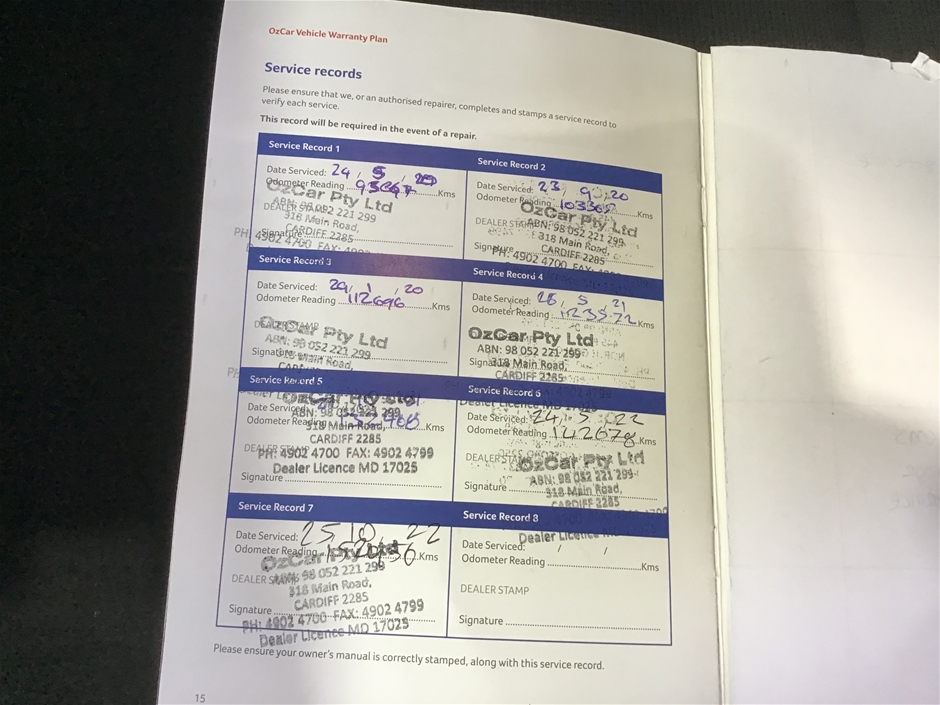 OzCar Vehicle Warranty Plan
Service records
Please ensure that we, or an authorised repairer, completes and stamps a service record to
verify each service.
This record will be required in the event of a repair.
Service Record 1
Date Serviced: 24, 5,
Odometer Reading Kms
OzCar Pty Ltd
ABN: 98 052 221 299
DEALER STAMP
318 Main Road,
CARDIFF 2285
Signature
PH: 4902 4700 FAX:
Service Record 2
Date Serviced: 23, 9, 20
Odometer Reading Kms
OzCar Pty Ltd
DEALER STAMP
ABN: 98 052 221 299
318 Main Road,
CARDIFF 2285
Signature
PH: 4902 4700 FAX:
Service Record 3
Date Serviced: 29, 1, 20
Odometer Reading 112696 Kms
DEALER STAMP
OzCar Pty Ltd
ABN: 98 052 221 299
Signature 318 Main Road,
Service Record 4
Date Serviced: 28, 5, 21
Odometer Reading 123572 Kms
OzCar Pty Ltd
ABN: 98 052 221 299
Signature 318 Main Road,
CARDIFF 2285
Service Record 5
OzCar Pty Ltd
Date Serviced:
ABN: 98 052 221 299
Odometer Reading Kms
318 Main Road,
CARDIFF 2285
DEALER STAMP
PH: 4902 4700 FAX: 4902 4799
Dealer Licence MD 17025
Signature
Service Record 6
Date Serviced: 24, 5, 22
Odometer Reading 142678 Kms
DEALER STAMP
OzCar Pty Ltd
ABN: 98 052 221 299
Signature 318 Main Road,
CARDIFF 2285
Service Record 7
Date Serviced: 25, 10, 22
Odometer Reading Kms
OzCar Pty Ltd
DEALER STAMP
ABN: 98 052 221 299
318 Main Road,
CARDIFF 2285
Signature
PH: 4902 4700 FAX: 4902 4799
Dealer Licence MD 17025
Service Record 8
Dealer Licence
Date Serviced: , ,
Odometer Reading Kms
DEALER STAMP
Signature
Please ensure your owner's manual is correctly stamped, along with this service record.
15